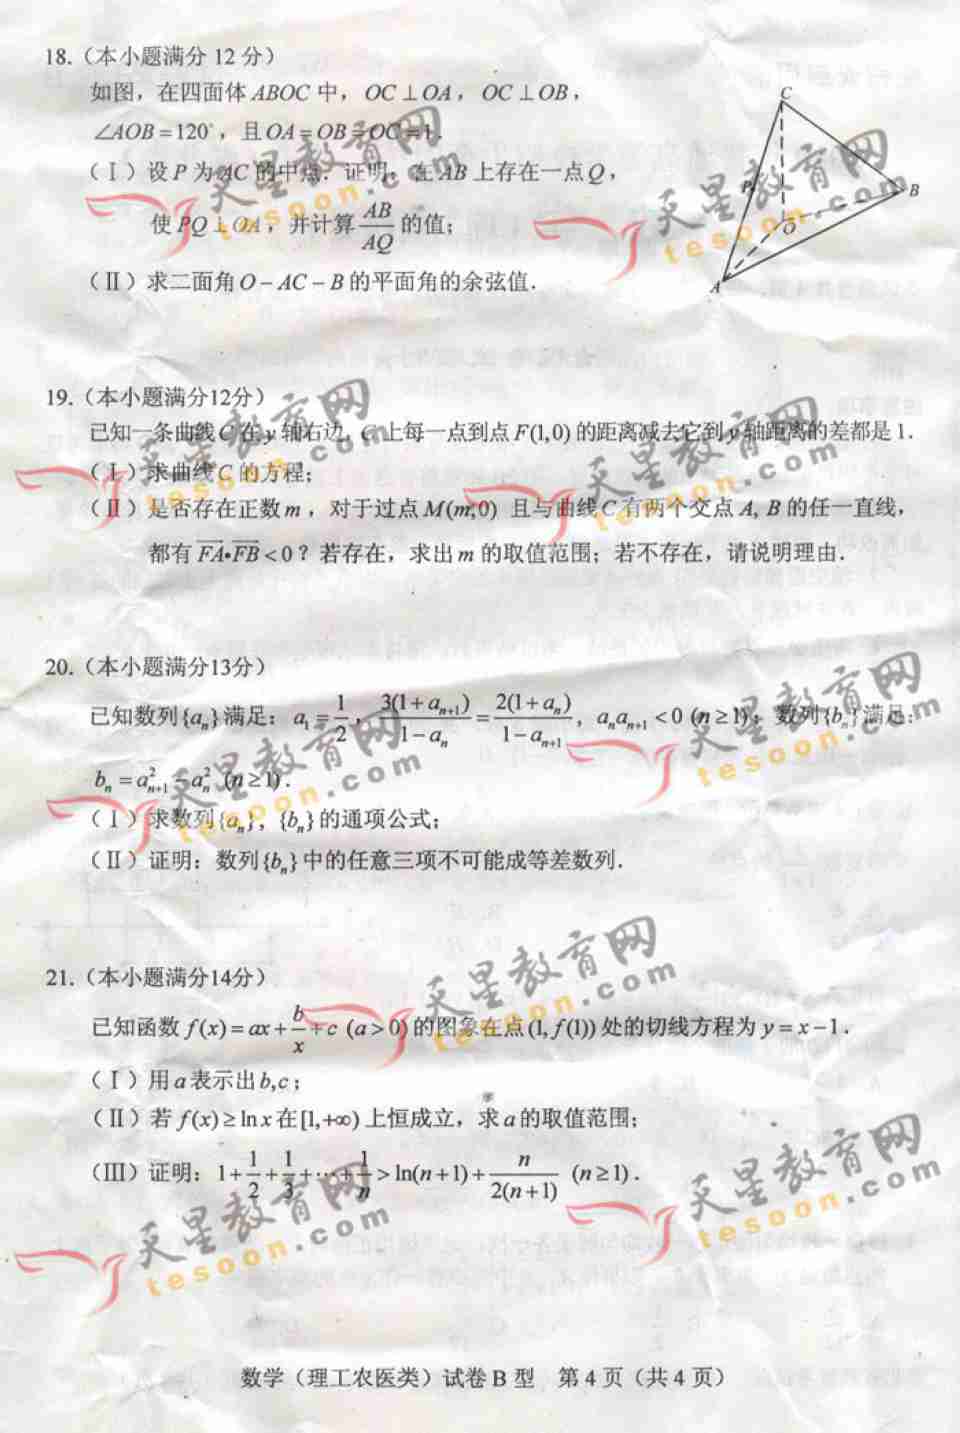 18.（本小题满分 12 分）
如图，在四面体 ABOC 中，OC⊥OA，OC⊥OB，
∠AOB=120°，且 OA=OB=OC=1.
（Ⅰ）设 P 为 AC 的中点．证明：在 AB 上存在一点 Q，
使 PQ⊥OA，并计算 AB/AQ 的值；
（Ⅱ）求二面角 O－AC－B 的平面角的余弦值．
C
P
B
O
A
19.（本小题满分12分）
已知一条曲线 C 在 y 轴右边，C 上每一点到点 F(1,0) 的距离减去它到 y 轴距离的差都是 1．
（Ⅰ）求曲线 C 的方程；
（Ⅱ）是否存在正数 m，对于过点 M(m,0) 且与曲线 C 有两个交点 A, B 的任一直线，
都有 FA•FB<0？若存在，求出 m 的取值范围；若不存在，请说明理由．
20.（本小题满分13分）
已知数列{aₙ}满足：a₁=1/2，3(1+aₙ₊₁)/(1−aₙ)=2(1+aₙ)/(1−aₙ₊₁)，aₙaₙ₊₁<0 (n≥1)；数列{bₙ}满足：
bₙ=aₙ₊₁²−aₙ² (n≥1)．
（Ⅰ）求数列{aₙ}，{bₙ}的通项公式；
（Ⅱ）证明：数列{bₙ}中的任意三项不可能成等差数列．
21.（本小题满分14分）
已知函数 f(x)=ax+b/x+c (a>0) 的图象在点 (1, f(1)) 处的切线方程为 y=x−1．
（Ⅰ）用 a 表示出 b,c；
（Ⅱ）若 f(x)≥ln x 在 [1,+∞) 上恒成立，求 a 的取值范围；
（Ⅲ）证明：1+1/2+1/3+⋯+1/n>ln(n+1)+n/(2(n+1)) (n≥1)．
数学（理工农医类）试卷 B 型 第 4 页（共 4 页）
天星教育网
tesoon.com
天星教育网
tesoon.com
天星教育网
tesoon.com
天星教育网
tesoon.com
天星教育网
tesoon.com
天星教育网
tesoon.com
天星教育网
tesoon.com
天星教育网
tesoon.com
天星教育网
tesoon.com